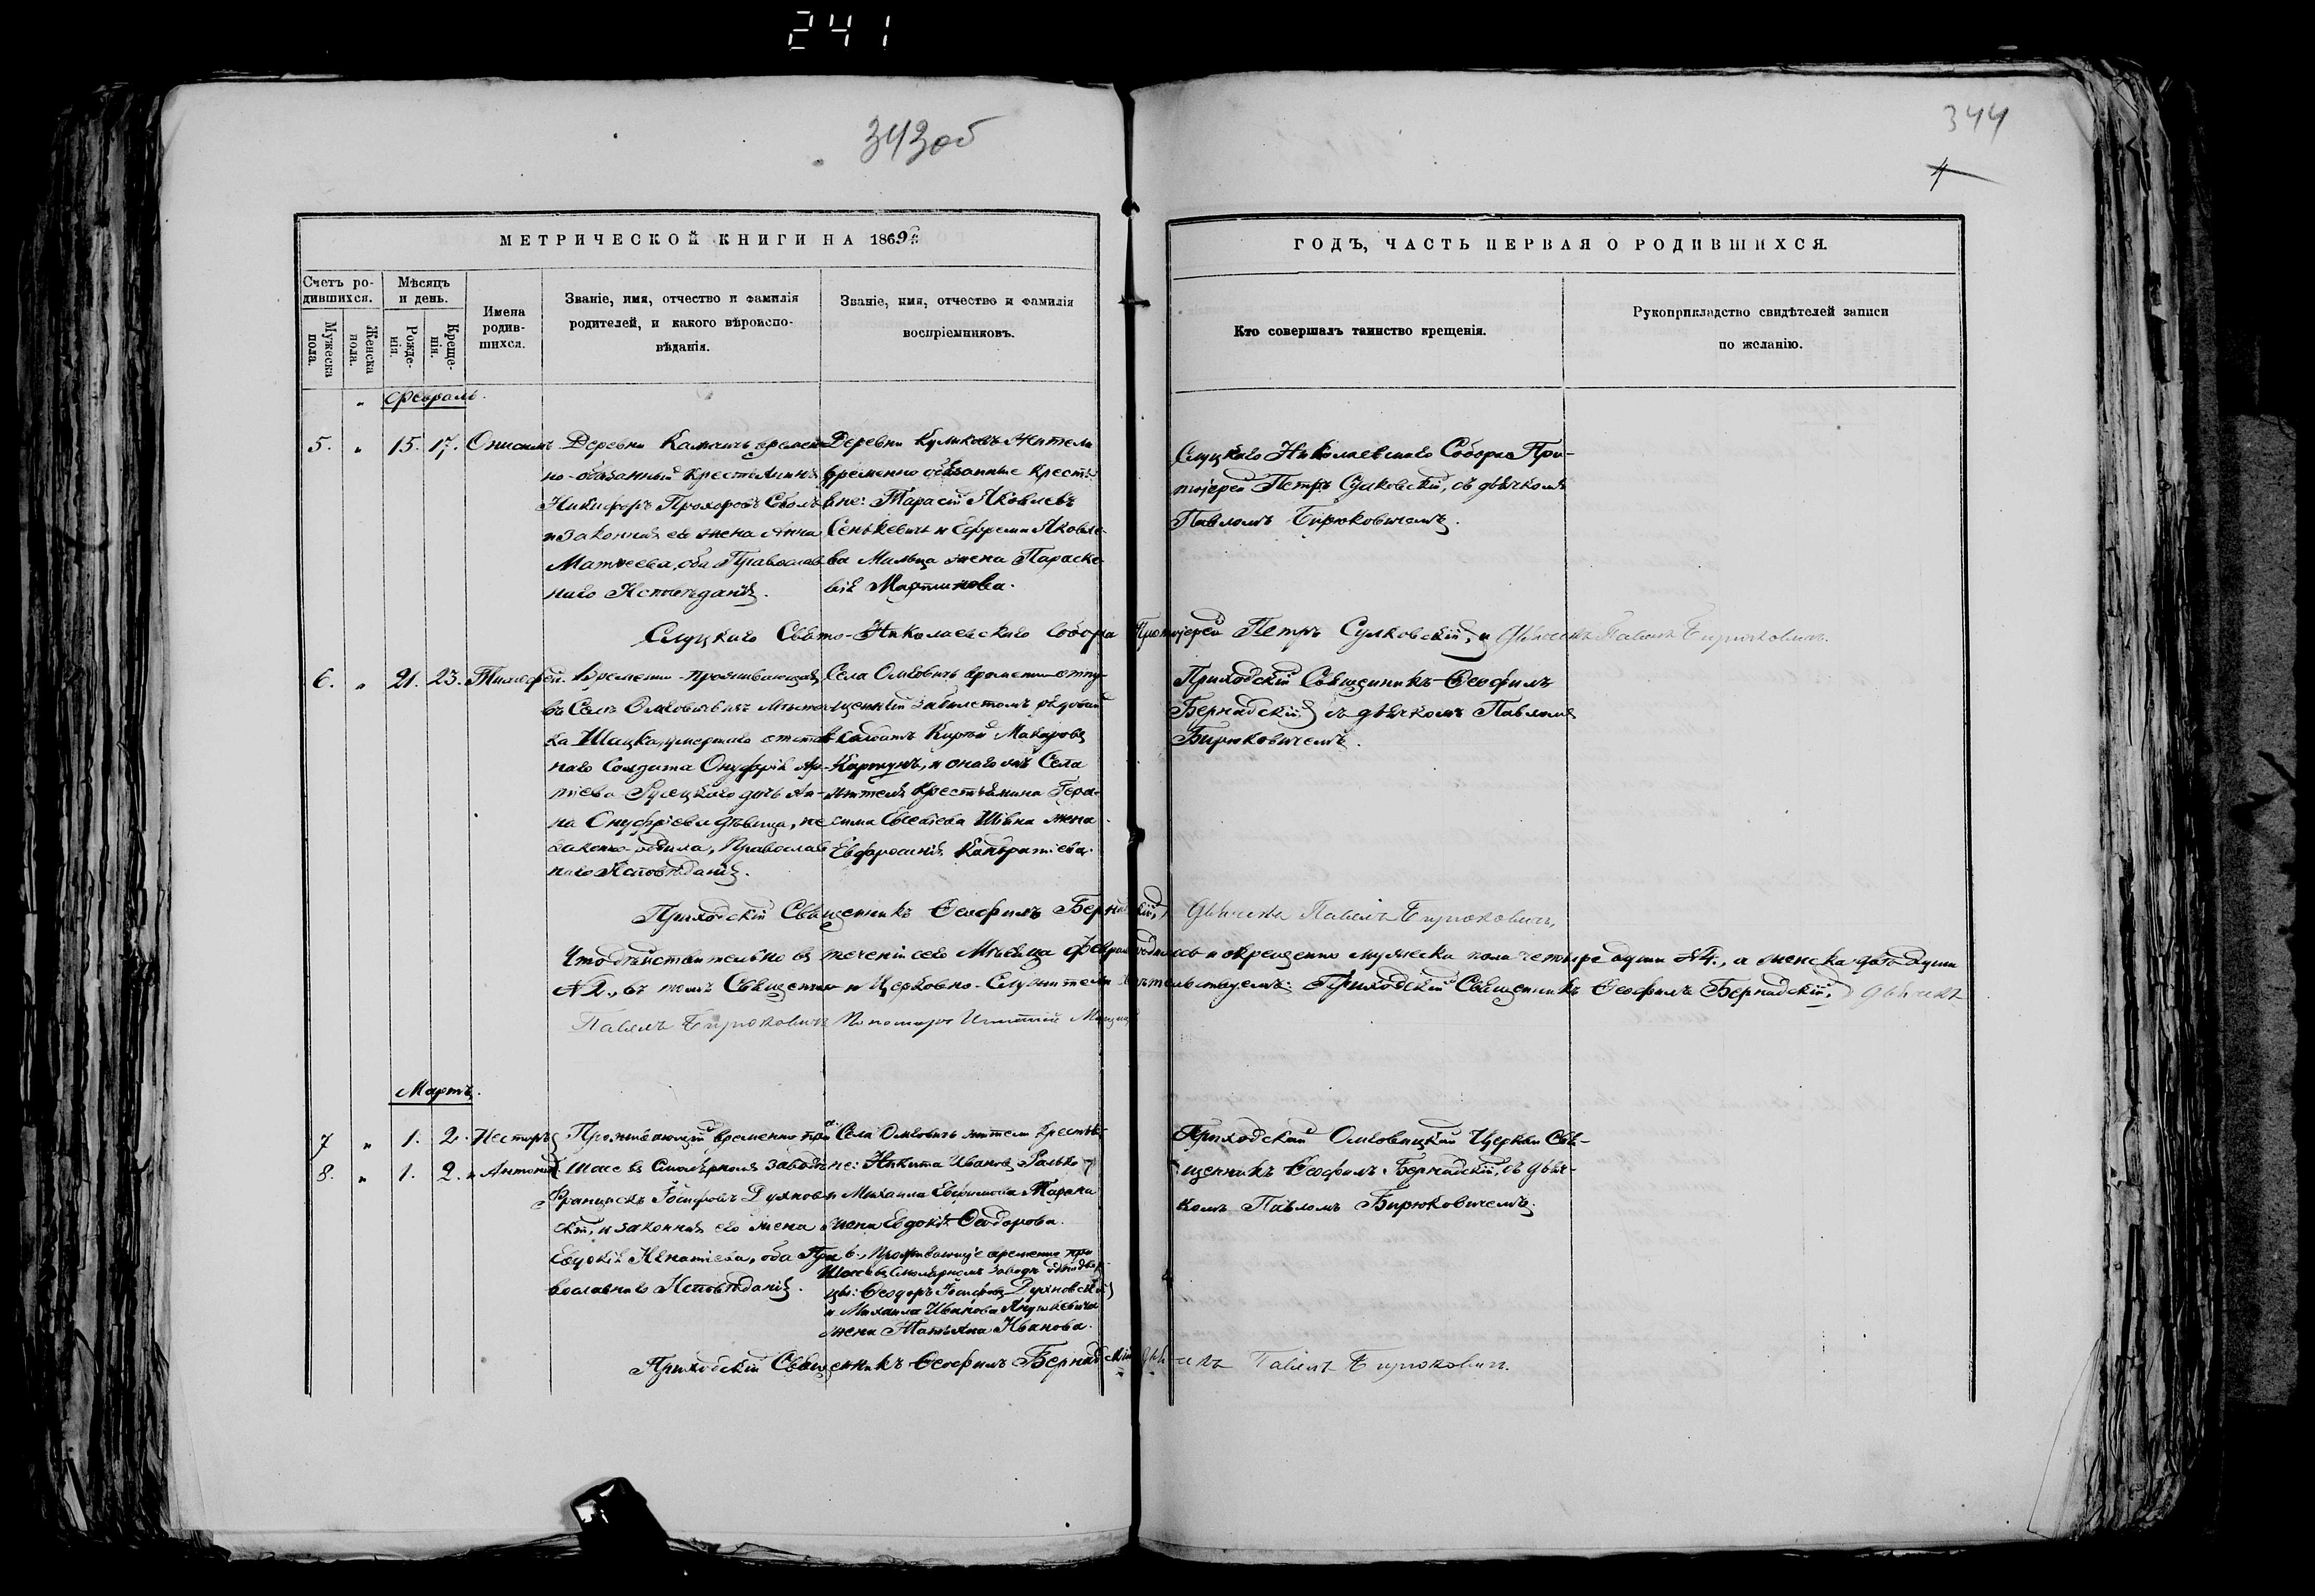 241
343об
344
4
МЕТРИЧЕСКОЙ КНИГИ НА 1869й
ГОДЪ, ЧАСТЬ ПЕРВАЯ О РОДИВШИХСЯ.
Счетъ ро-
дившихся.
Мужеска
пола.
Женска
пола.
Мѣсяцъ
и день.
Рожде-
нія.
Креще-
нія.
Имена
родив-
шихся.
Званіе, имя, отчество и фамилія
родителей, и какого вѣроиспо-
вѣданія.
Званіе, имя, отчество и фамилія
воспріемниковъ.
Кто совершалъ таинство крещенія.
Рукоприкладство свидѣтелей записи
по желанію.
Февраль.
5. " 15. 17. Онисимъ
Деревни времен-
но-обязанный крестьянинъ
Никифоръ Прохоровъ
и законная его жена Анна
Матѳеева, оба Православ-
наго Исповѣданія.
Деревни Куликовъ жители
временно обязанные кресть-
яне: Тарасій Яковлевъ
Сенькевичъ и Ефрема Яковле-
ва жена Параске-
вія Мартинова.
Слуцкаго Николаевскаго Собора Про-
тоіерей Петръ Сулковскій, съ дьячкомъ
Павломъ Бирюковичемъ.
Слуцкаго Свято-Николаевскаго Собора Протоіерей Петръ Сулковскій, и дьячекъ Павелъ Бирюковичъ.
6. " 21. 23. Тимоѳей.
Временно-проживающая
въ Селѣ Омговичахъ мѣстеч-
ка Шацка, умершаго отстав-
наго Солдата Онуфрія
дочь Ан-
на Онуфріева дѣвица, не
законно родила, Православ-
наго Исповѣданія.
Села Омговичъ временно отпу-
щенный за билетомъ рядовый
солдатъ Макаровъ
и онаго жъ Села
жителя Крестьянина Гера-
сима жена
Евфросинія Кондратіева.
Приходскій Священникъ Ѳеофилъ
Бернадскій, съ дьячкомъ Павломъ
Бирюковичемъ.
Приходскій Священникъ Ѳеофилъ Бернадскій, дьячекъ Павелъ Бирюковичъ,
Что дѣйствительно въ теченіи сего Мѣсяца Февраля родилось и окрещенно мужеска пола четыре души №4., а женска двѣ души
№2., въ томъ Священно и Церковно-Служители свидѣтельствуемъ: Приходскій Священникъ Ѳеофилъ Бернадскій, дьячекъ
Павелъ Бирюковичъ Пономарь
Мартъ.
7 " 1. 2. Несторъ
8. " 1. 2. и Антоній
Проживающій временно при
Шасе въ Смолярномъ заводѣ
Францискъ Іосифовъ Духнов-
скій, и законная его жена
Евдокія Игнатіева, оба Пра-
вославнаго Исповѣданія.
а. Села Омговичъ жители Крестья-
не: Никита Ивановъ
и Михаила
жена Евдокія Ѳеодорова.
б. Проживающіе временно при
Шасе въ Смолярномъ заводѣ однодвор-
цы: Ѳеодоръ Іосифовъ Духновскій
и Михаила Иванова
жена Татьяна Иванова.
Приходскій Омговицкой Церкви Свя-
щенникъ Ѳеофилъ Бернадскій, съ дьяч-
комъ Павломъ Бирюковичемъ.
Приходскій Священникъ Ѳеофилъ Бернадскій дьячекъ Павелъ Бирюковичъ.